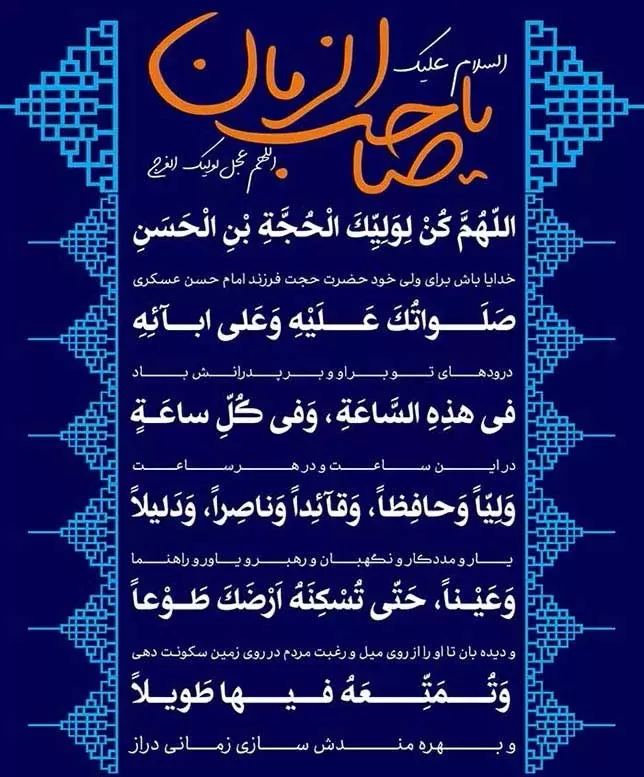 السلام علیک
یا صاحب الزمان
اللهم عجل لولیک الفرج
اللّهُمَّ كُنْ لِوَلِيِّكَ الْحُجَّةِ بْنِ الْحَسَنِ
خدایا باش برای ولی خود حضرت حجت فرزند امام حسن عسکری
صَلَـواتُكَ عَلَـيْهِ وَعَلى ابـآئِهِ
درودهـای تـو بـر او و بـر پـدرانـش بـاد
في هذِهِ السَّاعَةِ، وَفي كُلِّ ساعَةٍ
در این ساعـت و در هـر سـاعـت
وَلِيّاً وَحافِظاً، وَقآئِداً وَناصِراً، وَدَليلاً
یـار و مددکار و نگهبـان و رهبـر و یـاور و راهنـما
وَعَيْـناً، حَتّى تُسْكِنَهُ اَرْضَكَ طَـوْعاً
و دیده بان تا او را از روی میل و رغبت مردم در روی زمین سکونت دهی
وَتُـمَتِّـعَهُ فيـها طَويـلاً
و بـهره منـدش سـازی زمـانی دراز